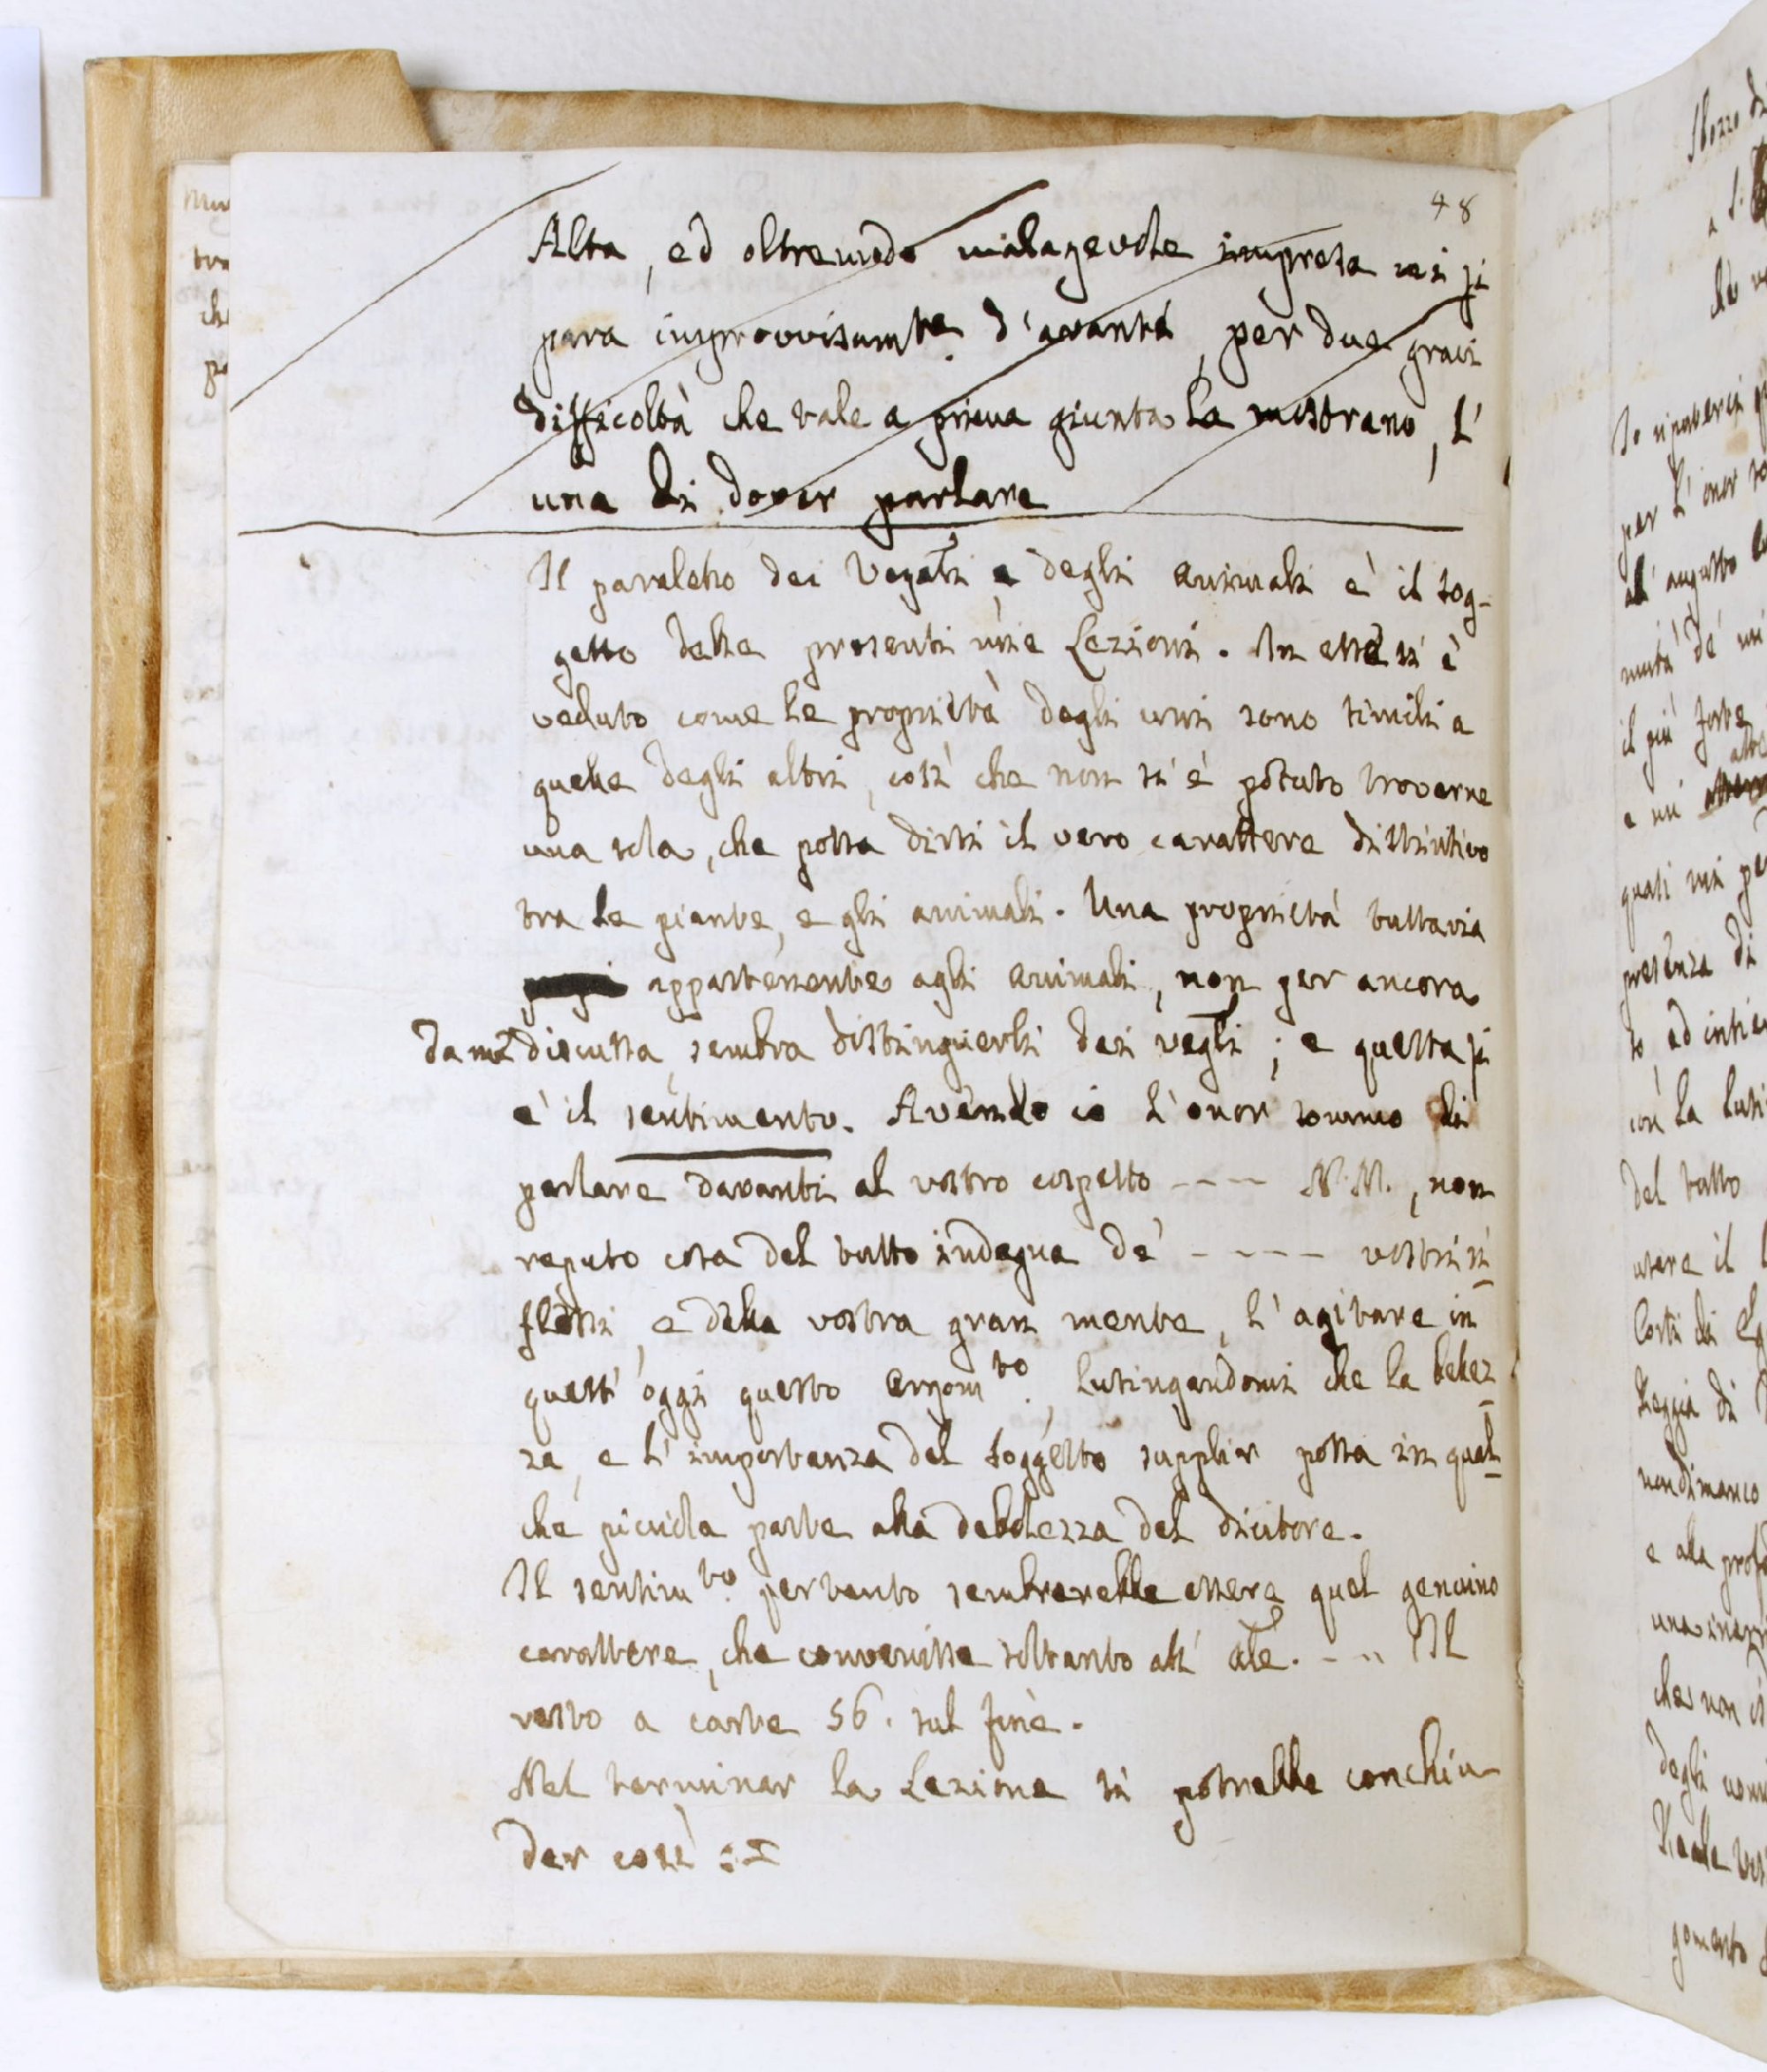 48
Alta, ed oltremodo malagevole impresa mi si
para improvvisamte. d'avanti, per due gravi
difficoltà che tale a prima giunta la mostrano, l'
una di dover parlare
Il paralello dei Vegatli e degli animali è il sog-
getto delle presenti mie Lezioni. In esse si è
veduto come le proprietà degli uni sono simili a
quelle degli altri, così che non si è potuto trovarne
una sola, che possa dirsi il vero carattere distintivo
tra le piante, e gli animali. Una proprietà tuttavia
appartenente agli animali, non per ancora
da me discussa, sembra distinguerli dai vegli; e questa si
è il sentimento. Avendo io l'onor sommo di
parlare davanti al vostro cospetto ---- N.N., non
reputo cosa del tutto indegna de' ---- vostri ri
flessi, e della vostra gran mente, l'agitare in
quest'oggi questo argomto., lusingandomi che la bellez
za, e l'importanza del soggetto supplir possa in qual
che picciola parte alla debolezza del dicitore.
Il sentimto. pertanto sembrerebbe essere quel genuino
carattere, che convenisse soltanto all' ale. --- Il
resto a carte 56. sul fine.
Nel terminar la Lezione si potrebbe conchiu
der così :=